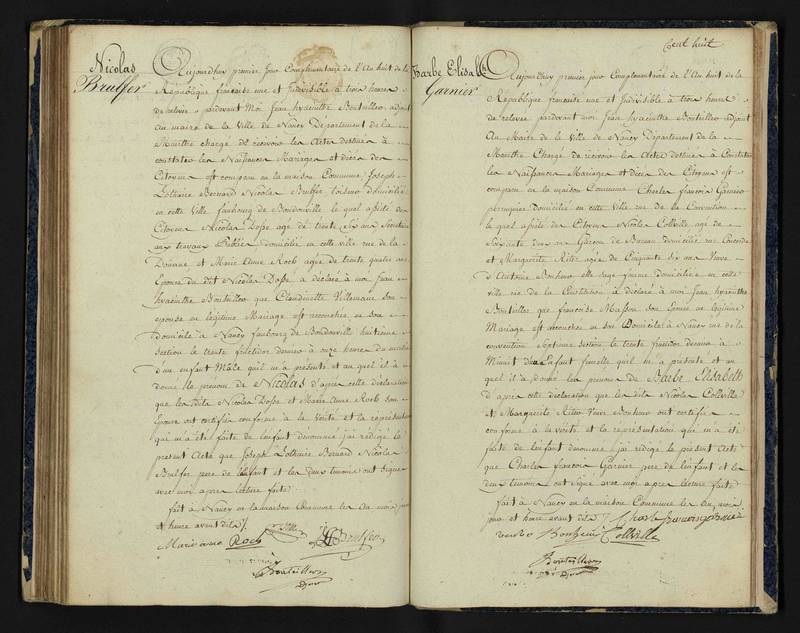 Nicolas
Brulfer
Aujourd'huy premier jour Complementaire de L'An huit de la
République française une et Indivisible à trois heures
de relevée pardevant Moi Jean hyacinthe Bouteiller adjoint
au maire de la Ville de Nancy Département de la
Meurthe chargé de recevoir les Actes destinés à
constater les Naissances Mariages et décès des
Citoyens est comparu en la maison Commune Joseph
Lothaire Bernard Nicolas Brulfer domicilié
en cette Ville faubourg de Boudonville lequel assisté de
Citoyen Nicolas Dosse agé de trente six ans
aux travaux Publics domicilié en cette ville rue de la
Douane et Marie Anne Roch agée de trente quatre ans
Epouse du dit Nicolas Dosse a déclaré à moi Jean
hyacinthe Bouteiller que Claudinette Villemain son
epouse en légitime Mariage est accouchée en son
domicile à Nancy faubourg de Boudonville huitieme
Section le trente fructidor dernier à onze heures du matin
d'un enfant Mâle qu'il m'a présenté et au quel il a
donné le prenom de Nicolas d'après cette déclaration
que les dits Nicolas Dosse et Marie Anne Roch son
Epouse ont certifiée conforme à la vérité et la représentation
qui m'a été faite de l'enfant denommé j'ai rédigé le
présent Acte que Joseph Lothaire Bernard Nicolas
Brulfer pere de l'enfant et les deux temoins ont signé
avec moi apres lecture faite
fait à Nancy en la maison Commune les an mois jour
et heure avant dits
Marie anne Roch Brulfer
Bouteiller
Adjoint
Cent huit
Barbe Elisabeth
Garnier
Aujourd'huy premier jour Complementaire de l'An huit de la
République française une et Indivisible à trois heures
de relevée pardevant moi Jean hyacinthe Bouteiller adjoint
au Maire de la Ville de Nancy Département de la
Meurthe Chargé de recevoir les Actes destinés à Constater
les Naissances Mariages et décès des Citoyens est
comparu en la maison Commune Charles françois Garnier
perruquier Domicilié en cette ville rue de la Convention
lequel assisté des Citoyens Nicolas Collville agé de
Soixante deux ans Garcon de Bureau domicilié rue Concorde
et Marguerite agée de Cinquante six ans Veuve
d'Antoine Bonheur elle sage femme domiciliée en cette
ville rue de la Constitution a déclaré à moi Jean hyacinthe
Bouteiller que françoise Masson son Epouse en légitime
Mariage est accouchée en son Domicile à Nancy rue de la
convention Septieme section le trente fructidor dernier à
Minuit d'un Enfant femelle qu'il m'a présenté et au
quel il a donné les prenoms de Barbe Elisabeth
d'apres cette déclaration que les dits Nicolas Collville
et Marguerite Veuve Bonheur ont certifiée
conforme à la vérité et la représentation qui m'a été
faite de l'enfant denommé j'ai rédigé le présent Acte
que Charles françois Garnier pere de l'enfant et les
deux temoins ont signé avec moi apres lecture faite
fait à Nancy en la maison Commune les an, mois
jour et heure avant dits Charle francois garnier
Collville
Bouteiller
Adjoint